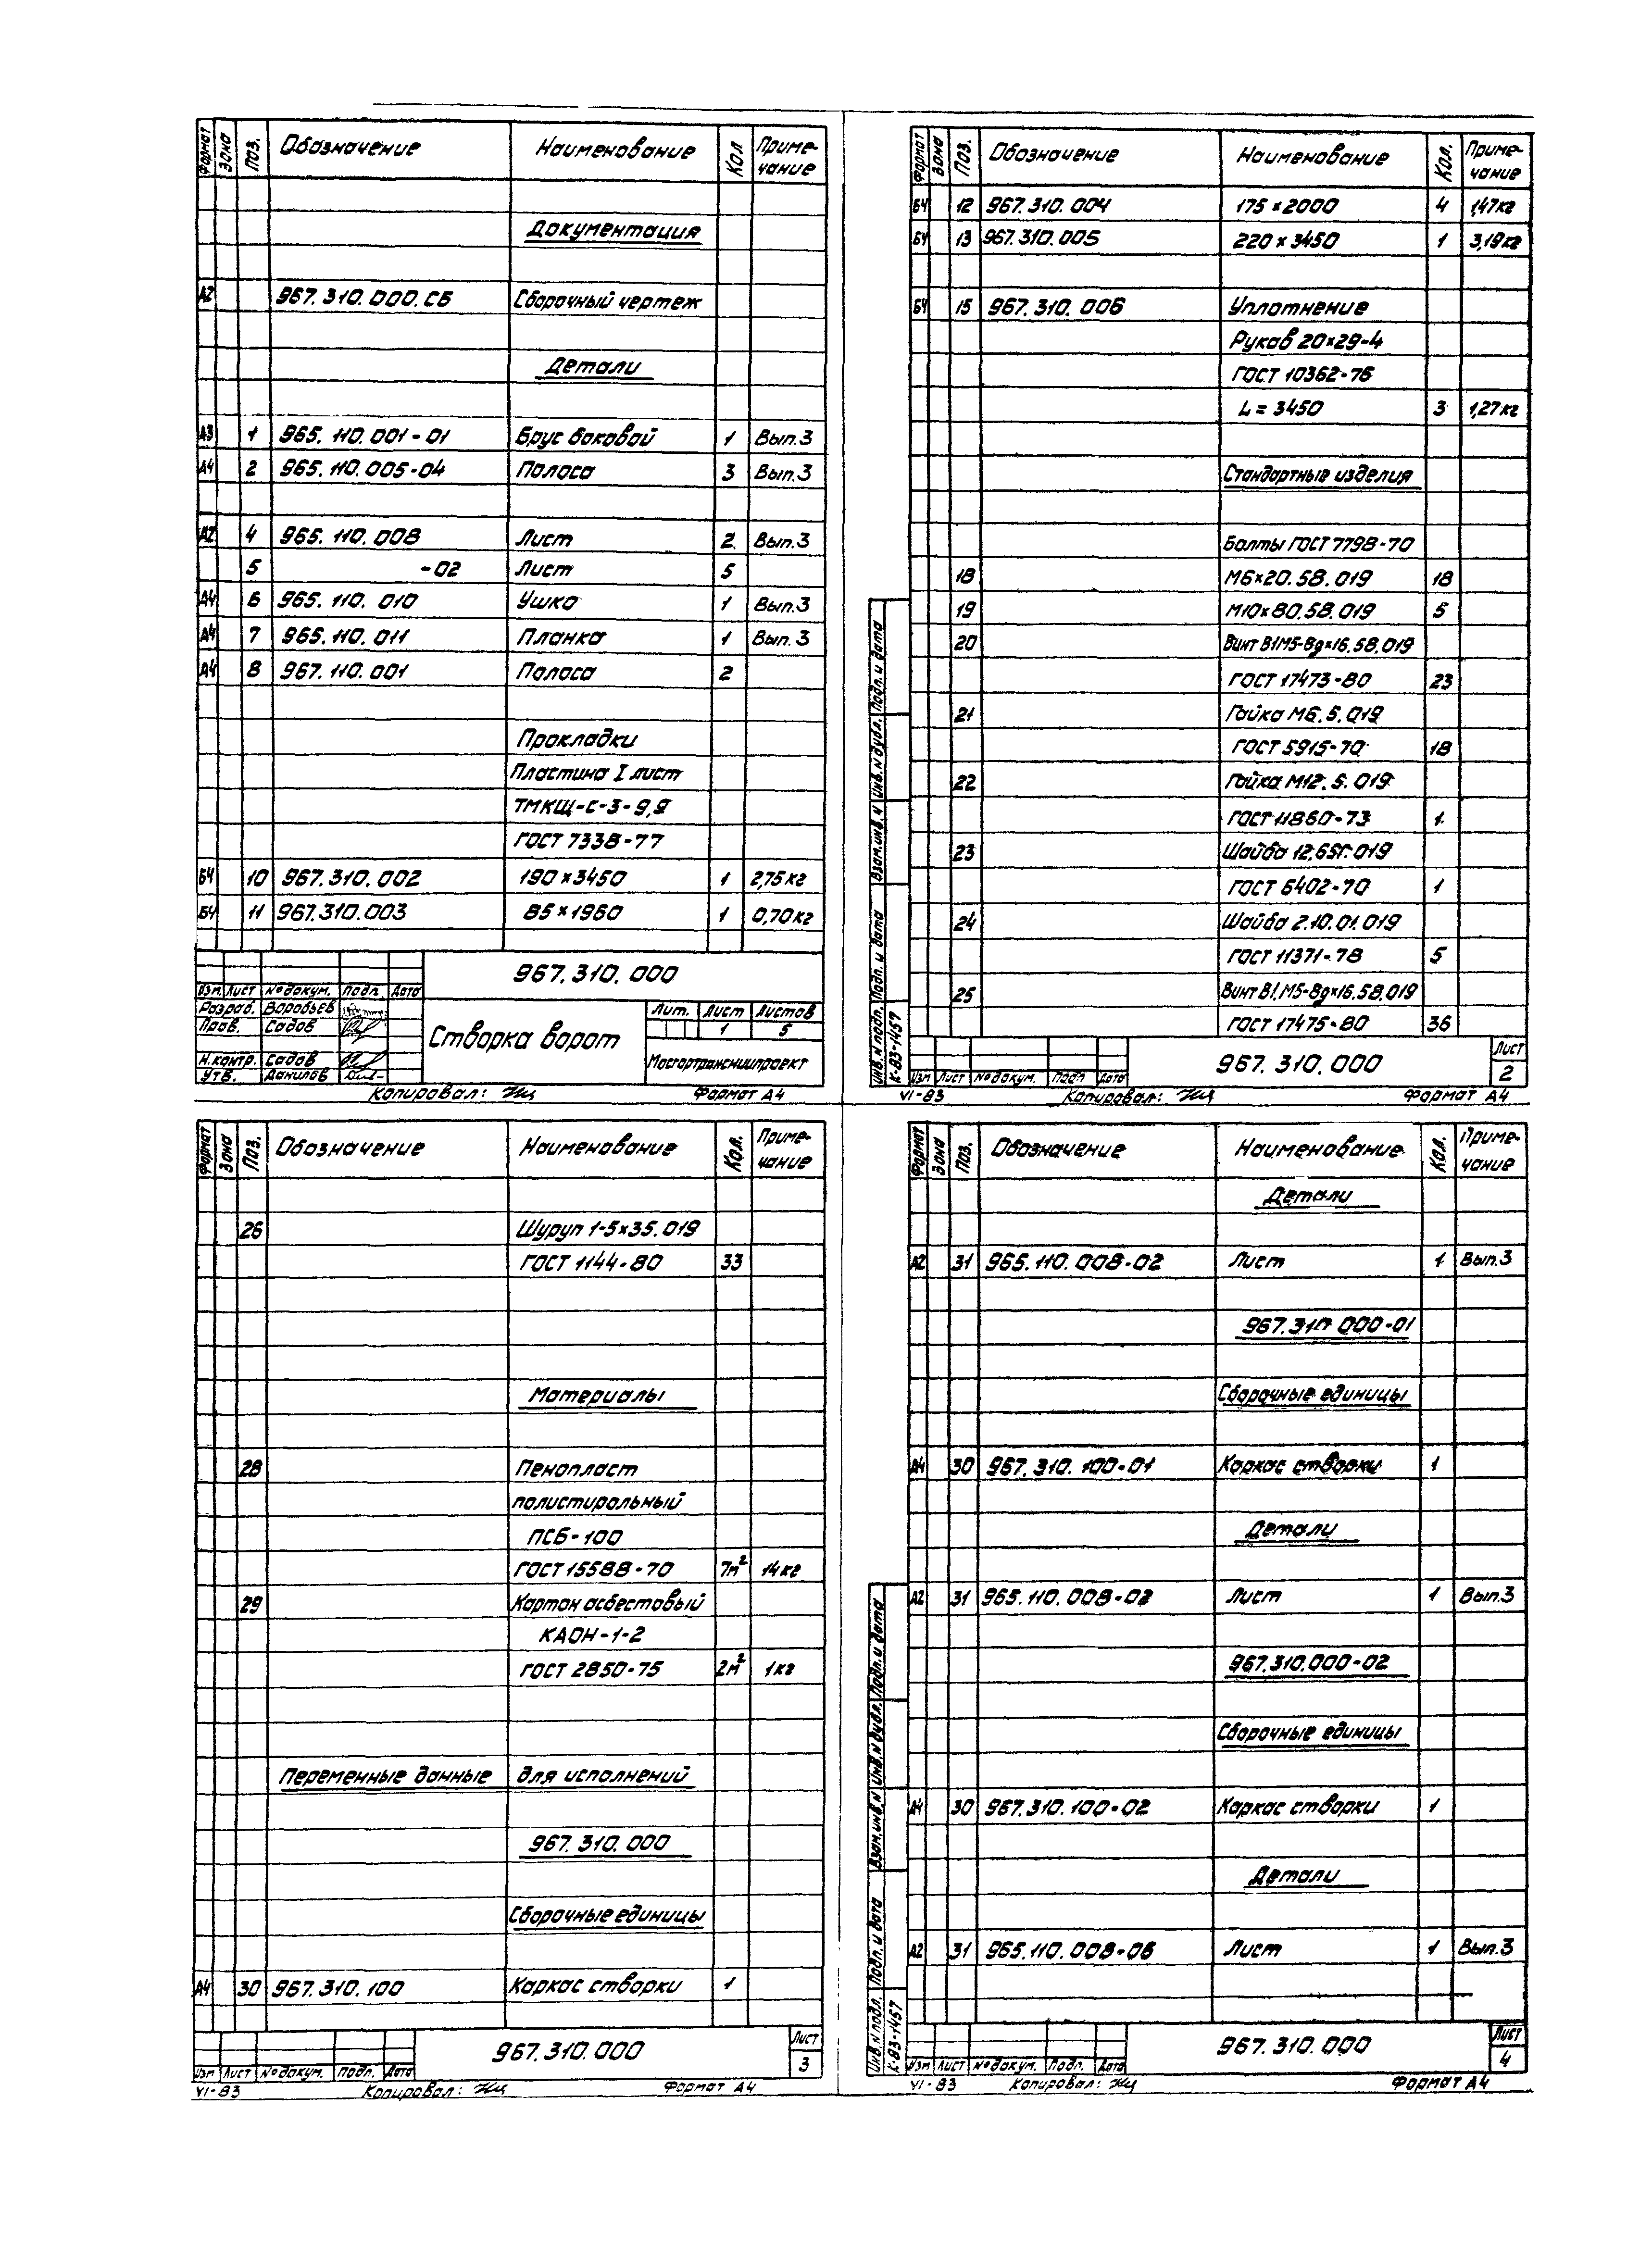 Формат Зона Поз. Обозначение Наименование Кол Приме-
чание
Документация
А2 967.310.000.СБ Сборочный чертеж
Детали
А3 1 965.110.001-01 Брус боковой 1 Вып.3
А4 2 965.110.005-04 Полоса 3 Вып.3
А2 4 965.110.008 Лист 2 Вып.3
5 -02 Лист 5
А4 6 965.110.010 Ушко 1 Вып.3
А4 7 965.110.011 Планка 1 Вып.3
А4 8 967.110.001 Полоса 2
Прокладки
Пластина I лист
ТМКЩ-С-3-9,9
ГОСТ 7338-77
БЧ 10 967.310.002 190×3450 1 2,75кг
БЧ 11 967.310.003 85×1960 1 0,70кг
967.310.000
Изм. Лист № докум. Подп. Дата
Разраб. Воробьев
Пров. Садов
Н.контр. Садов
Утв. Данилов
Створка ворот
Лит. Лист Листов
1 5
Мосгортрансниипроект
Копировал: Формат А4
Формат Зона Поз. Обозначение Наименование Кол. Приме-
чание
БЧ 12 967.310.004 175×2000 4 1,47кг
БЧ 13 967.310.005 220×3450 1 3,19кг
БЧ 15 967.310.006 Уплотнение
Рукав 20×29-4
ГОСТ 10362-76
L=3450 3 1,27кг
Стандартные изделия
Болты ГОСТ 7798-70
18 М6×20.58.019 18
19 М10×80.58.019 5
20 Винт В1М5-8g×16.58.019
ГОСТ 17473-80 23
21 Гайка М6.5.019
ГОСТ 5915-70 18
22 Гайка М12.5.019
ГОСТ 11860-73 1
23 Шайба 12.65Г.019
ГОСТ 6402-70 1
24 Шайба 2.10.01.019
ГОСТ 11371-78 5
25 Винт В1.М5-8g×16.58.019
ГОСТ 17475-80 36
Инв.№ подл. Подп. и дата Взам.инв.№ Инв.№ дубл. Подп. и дата
К-83-1457
Изм Лист № докум. Подп Дата
967.310.000
Лист
2
VI-83 Копировал: Формат А4
Формат Зона Поз. Обозначение Наименование Кол. Приме-
чание
26 Шуруп 1-5×35.019
ГОСТ 1144-80 33
Материалы
28 Пенопласт
полистирольный
ПСБ-100
ГОСТ 15588-70 7м² 14кг
29 Картон асбестовый
КАОН-1-2
ГОСТ 2850-75 2м² 1кг
Переменные данные для исполнений
967.310.000
Сборочные единицы
А4 30 967.310.100 Каркас створки 1
Изм Лист № докум. Подп. Дата
967.310.000
Лист
3
VI-83 Копировал: Формат А4
Формат Зона Поз. Обозначение Наименование Кол. Приме-
чание
Детали
А2 31 965.110.008-02 Лист 1 Вып.3
967.310.000-01
Сборочные единицы
А4 30 967.310.100-01 Каркас створки 1
Детали
А2 31 965.110.008-02 Лист 1 Вып.3
967.310.000-02
Сборочные единицы
А4 30 967.310.100-02 Каркас створки 1
Детали
А2 31 965.110.008-06 Лист 1 Вып.3
Инв.№ подл. Подп. и дата Взам.инв.№ Инв.№ дубл. Подп. и дата
К-83-1457
Изм Лист № докум. Подп. Дата
967.310.000
Лист
4
VI-83 Копировал: Формат А4